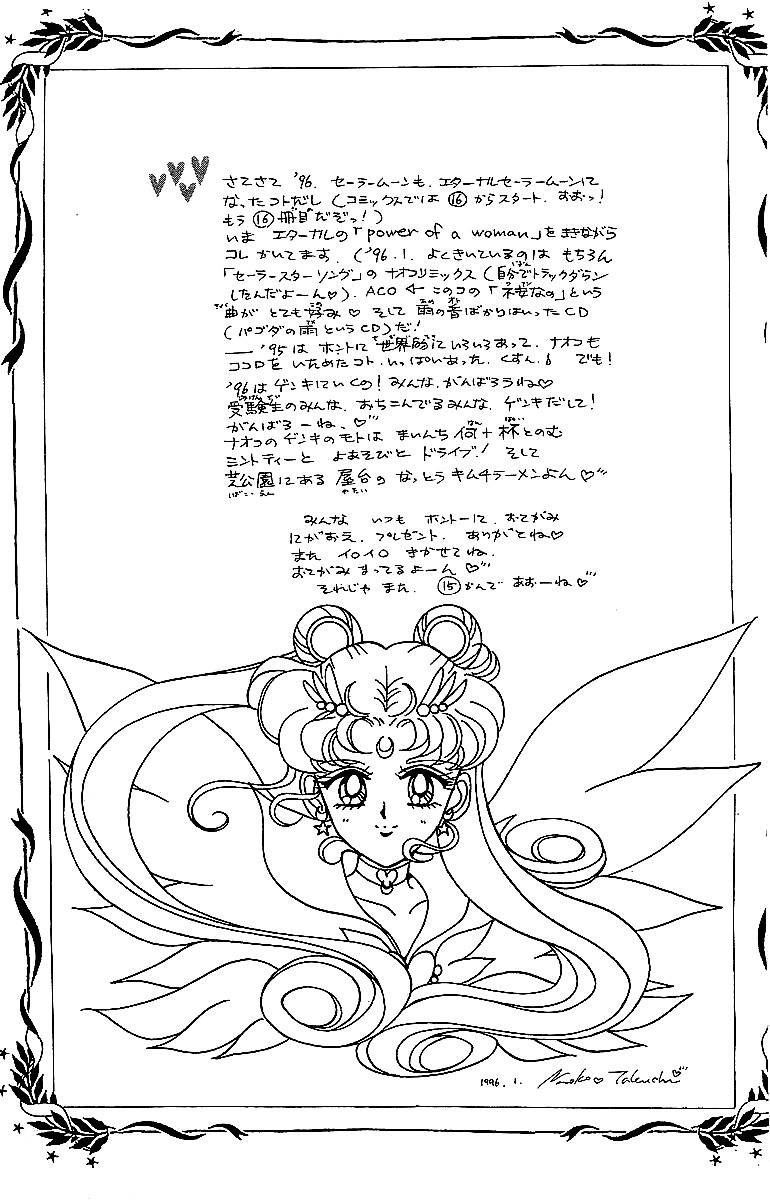 さてさて '96. セーラームーンも. エターナルセーラームーンに
なったコトだし (コミックスでは ⑯からスタート. おおっ!
もう ⑯冊目だぞっ!)
いま エターナルの「power of a woman」をききながら
コレかいてます. ('96.1. よくきいているのは もちろん
「セーラースターソング」の ナオコリミックス (自分でトラックダウン
したんだよーん♡). ACO ← このコの「不安なの」という
曲が とても好み♡ そして 雨の音ばかりはいった CD
(パゴダの雨という CD)だ!
—— '95は ホントに 世界的にいろいろあって. ナオコも
ココロを いためたコト. いっぱいあった. くすん. でも!
'96は ゲンキにいくの! みんな. がんばろうね♡
受験生のみんな. おちこんでるみんな. ゲンキだして!
がんばろーね. ♡
ナオコの ゲンキのモトは まいんち 何十杯とのむ
ミントティーと よあそびと ドライブ! そして
芝公園にある 屋台の なっとうキムチラーメンよん♡
みんな いつも ホントーに. おてがみ
にがおえ. プレゼント. ありがとね♡
また イロイロ きかせてね.
おてがみ まってるよーん♡
それじゃ また. ⑮かんで あおーね♡
1996. 1. Naoko♡Takeuchi